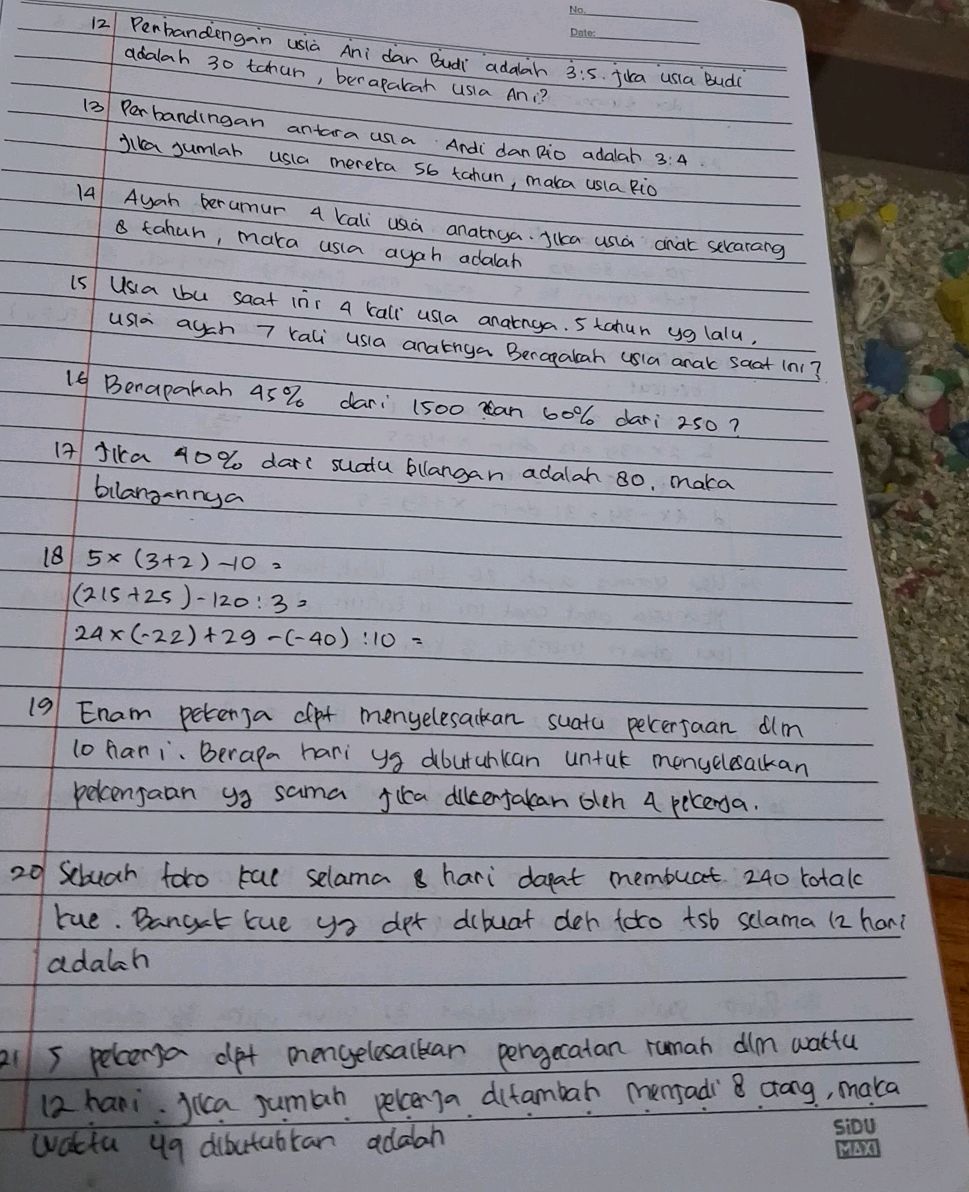 No.
Date:
12 Perbandingan usia Ani dan Budi adalah 3:5. jika usia Budi
adalah 30 tahun, berapakah usia Ani?
13 Perbandingan antara usia Andi dan Rio adalah 3:4.
jika jumlah usia mereka 56 tahun, maka usia Rio
14 Ayah berumur 4 kali usia anaknya. Jika usia anak sekarang
8 tahun, maka usia ayah adalah
15 Usia ibu saat ini 4 kali usia anaknya. 5 tahun yg lalu,
usia ayah 7 kali usia anaknya Berapakah usia anak saat ini?
16 Berapakah 45% dari 1500 dan 60% dari 250?
17 Jika 40% dari suatu bilangan adalah 80, maka
bilangannya
18 5 × (3+2) - 10 =
(215 + 25) - 120 : 3 =
24 × (-22) + 29 - (-40) : 10 =
19 Enam pekerja dpt menyelesaikan suatu pekerjaan dlm
10 hari. Berapa hari yg dibutuhkan untuk menyelesaikan
pekerjaan yg sama jika dikerjakan oleh 4 pekerja.
20 Sebuah toko kue selama 8 hari dapat membuat 240 kotak
kue. Banyak kue yg dpt dibuat oleh toko tsb selama 12 hari
adalah
21 5 pekerja dpt menyelesaikan pengecatan rumah dlm waktu
12 hari. jika jumlah pekerja ditambah menjadi 8 orang, maka
waktu yg dibutuhkan adalah
SiDU
MAXI